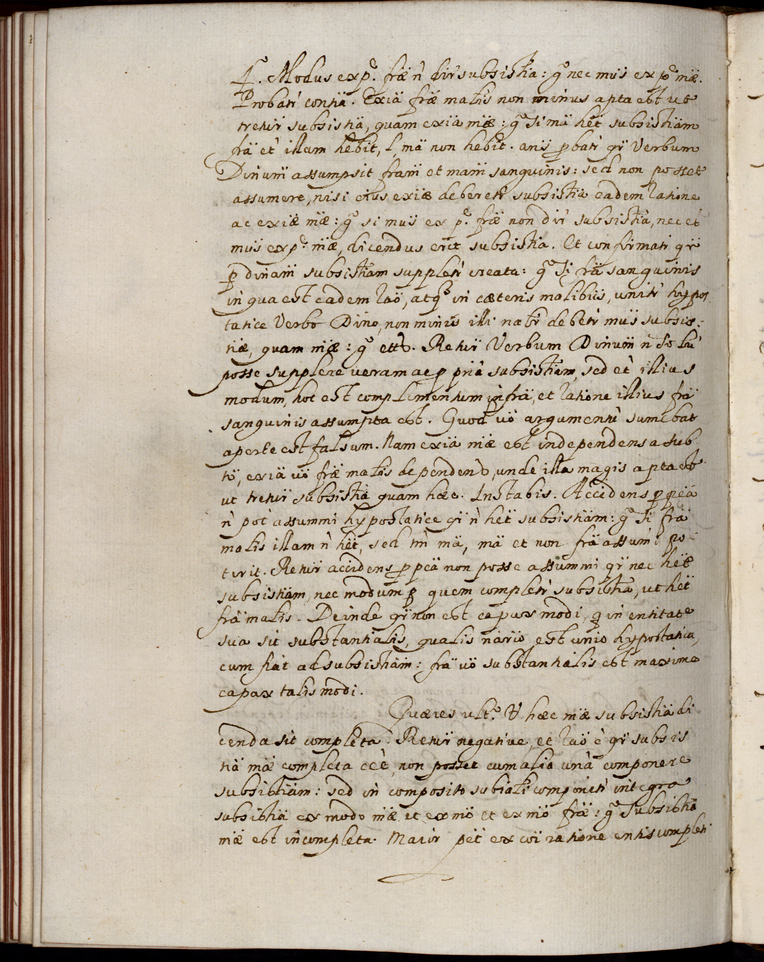 4.º Modus ex p.e fræ ñ dir subsistia: g.º nec mõs ex p.e mæ.
Probatr conseq.a. Exia fræ matis non minus apta est ut
treñr subsistiã, quam exia mæ: g.º si mã hẽt subsistiam
frã et illam hẽbit, l mã non habit. anis pbatr qr Verbum
Divinũ assumpsit fram et mam sanguinis: sed non posset
assumere, nisi ejus exiæ deberetr subsistia eadem ratione
ac exiæ mæ: g.º si mõs ex p.e fræ non dir subsistia, nec et
mõs ex p.e mæ, dicendus erit subsistia. Et confirmatr qr
p divinam subsistiam suppletr creata: g.º si frã sanguinis
in qua est eadem raõ, atq̃ in cæteris matibus, unitr hypos
tatice Verbo Divino, non minus illi natr debetr mõs subsis-
tiæ, quam mæ: g.º ettc. Respr Verbum Divinũ ñ solũ
posse supplere veram ac ppria subsistiam, sed et illius
modum, hoc est complimentum in frã, et ratione illius frã
sanguinis assumpta est. Quod vo argumentũ sumebat
aperte est falsum. Nam exia mæ est independens a sub-
to, exia vo fræ matis dependens, unde illa magis apta est
ut treñr subsistia quam hæc. Instabis. Accidens p pea
ñ pot assummi hypostatice qr ñ hẽt subsistiam: g.º si frã
matis illam ñ hẽt, sed tm mã, mã et non frã assumi po-
terit. Respr accidens p pea non posse assummi qr nec hẽt
subsistiam, nec modum p quem completr subsistia, ut hẽt
frã matis. Deinde qr non est capax modi, q in entitate
sua sit substantialis, qualis nario est unio hypostatica,
cum fiat ad subsistiam: frã vo substantialis est maxime
capax talis modi.
Quæres ult.o V hæc mæ subsistia di
cenda sit completa? Respr negative, et raõ e qr si subsis
tia mæ completa eet, non posset cum alia unã componere
subsistiam: sed in composito subtali componitr integra
subsistia ex modo mæ ut ex mõ et ex mõ fræ: g.º subsistia
mæ est incompleta. Maior pet ex coi ratione entis completi